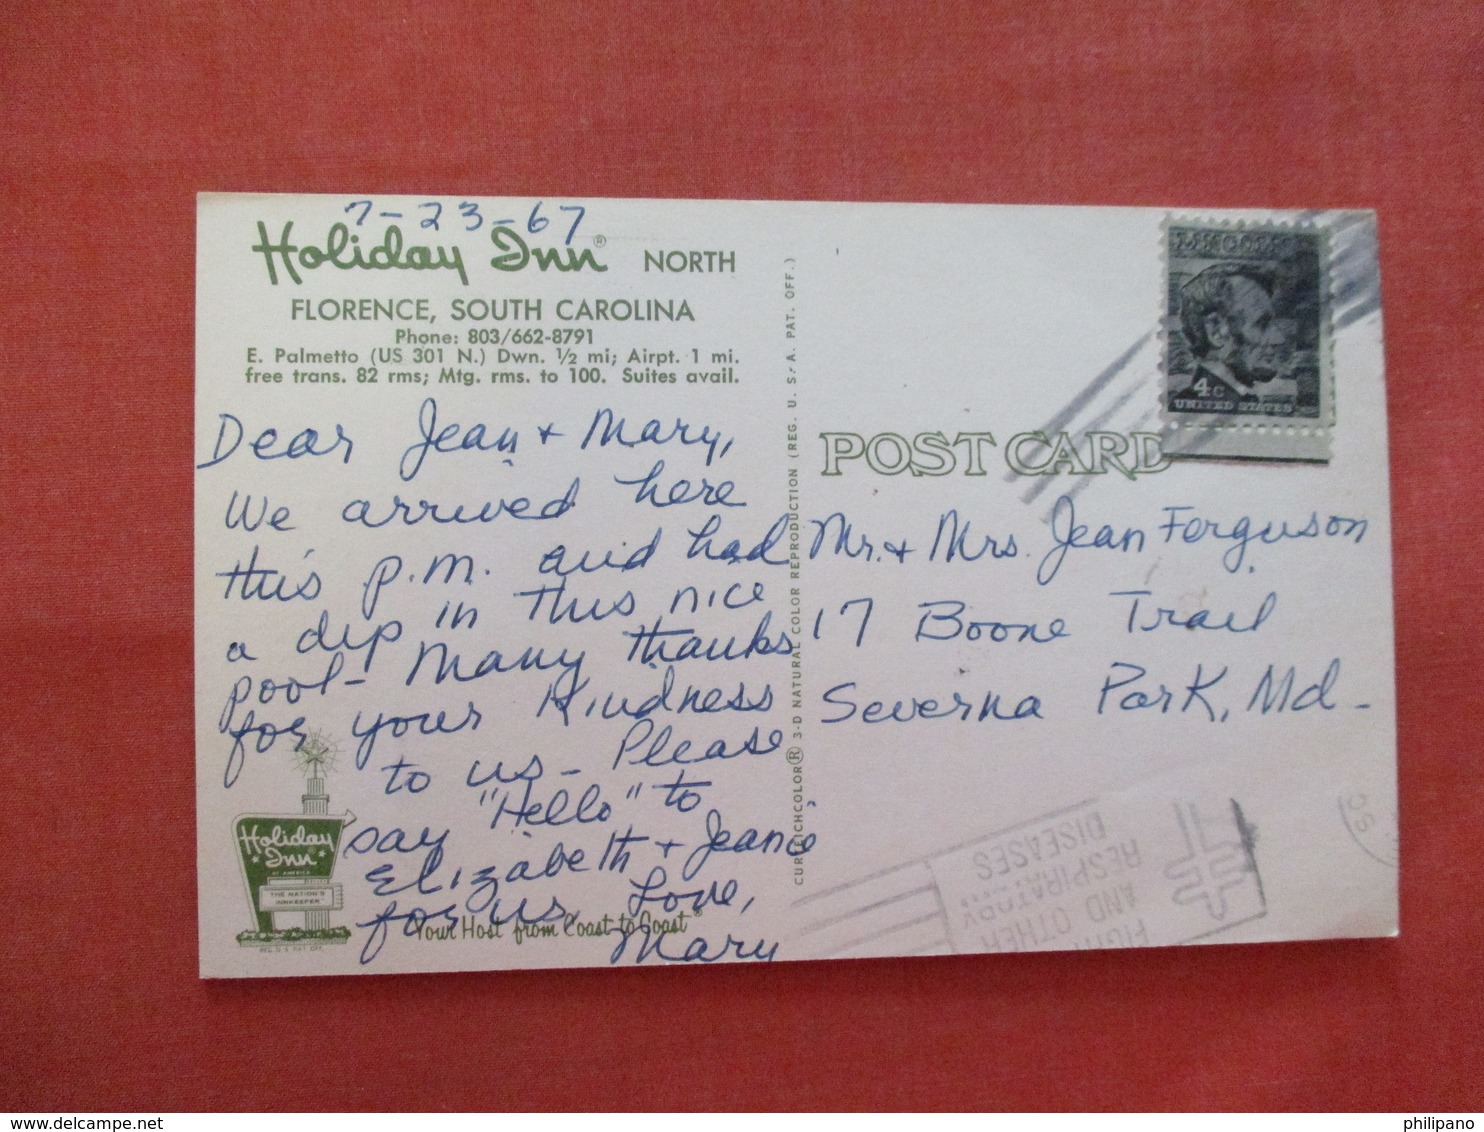 7-23-67
Holiday Inn® NORTH
FLORENCE, SOUTH CAROLINA
Phone: 803/662-8791
E. Palmetto (US 301 N.) Dwn. ½ mi; Airpt. 1 mi.
free trans. 82 rms; Mtg. rms. to 100. Suites avail.
Dear Jean + Mary,
We arrived here
this p.m. and had
a dip in this nice
pool- Many thanks
for your kindness
to us - Please
say "Hello" to
Elizabeth + Jeanie
for us, Love,
Mary
Holiday
Inn
OF AMERICA
THE NATION'S
INNKEEPER
REG. U.S. PAT. OFF.
Your Host from Coast to Coast®
CURTEICHCOLOR® 3-D NATURAL COLOR REPRODUCTION (REG. U. S. A. PAT. OFF.)
POST CARD
LINCOLN
4c
UNITED STATES
Mr. + Mrs. Jean Ferguson
17 Boone Trail
Severna Park, Md-
AND OTHER
RESPIRATORY
DISEASES
philipano